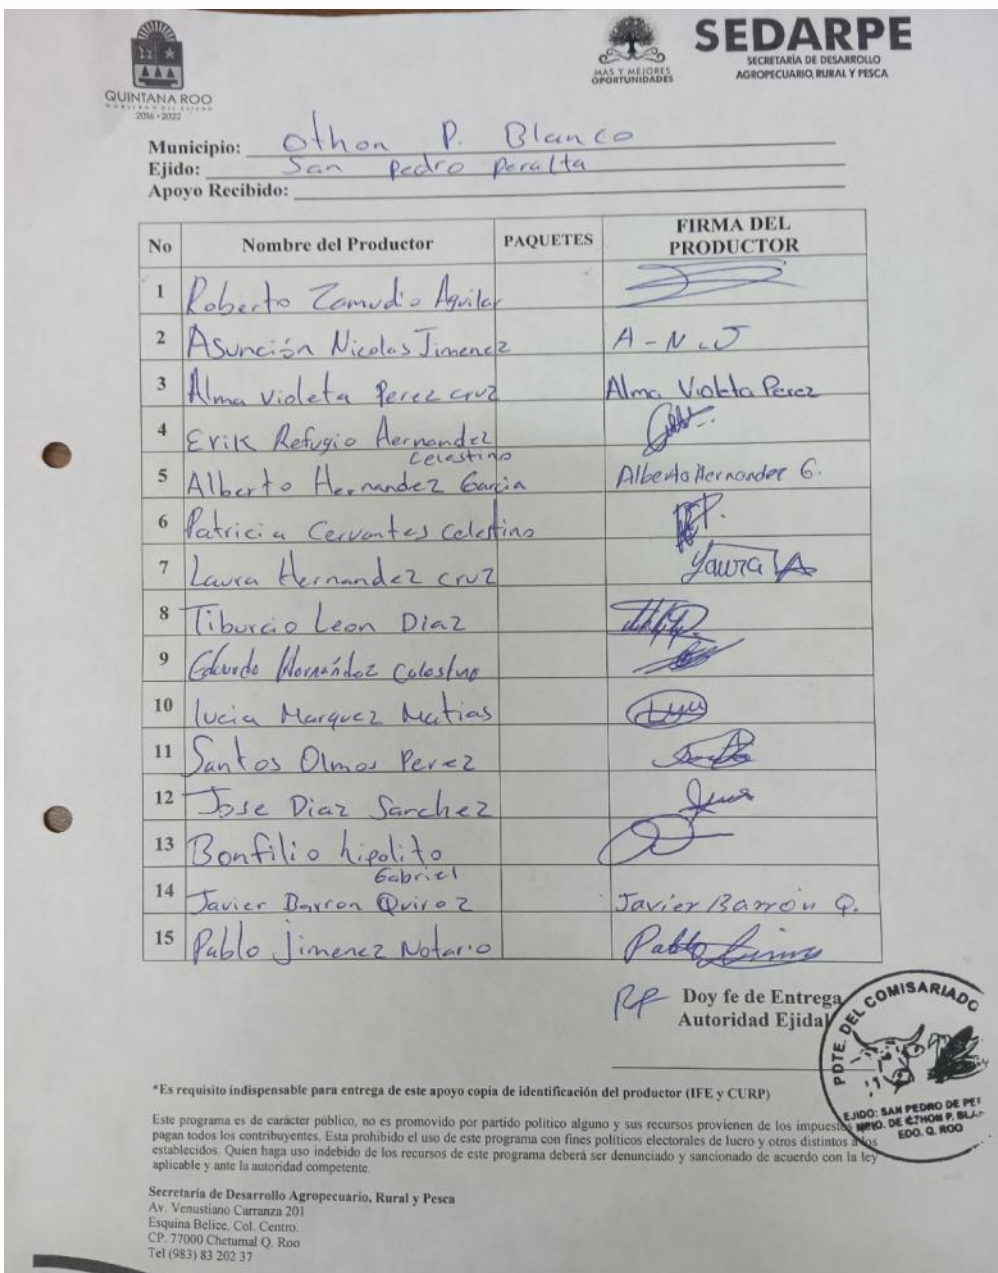 QUINTANA ROO
GOBIERNO DEL ESTADO
2016 • 2022
MÁS Y MEJORES
OPORTUNIDADES
SEDARPE
SECRETARÍA DE DESARROLLO
AGROPECUARIO, RURAL Y PESCA
Municipio: Othon P. Blanco
Ejido: San Pedro Peralta
Apoyo Recibido:
No Nombre del Productor PAQUETES FIRMA DEL PRODUCTOR
1 Roberto Zamudio Aguilar
2 Asunción Nicolas Jimenez A-N-J
3 Alma Violeta Perez cruz Alma Violeta Perez
4 Erik Refugio Hernandez Celestino
5 Alberto Hernandez Garcia Alberto Hernander G.
6 Patricia Cervantes Celestino
7 Laura Hernandez cruz Yaura
8 Tiburcio Leon Diaz
9 Eduardo Hernández Celestino
10 Lucia Marquez Matias
11 Santos Olmos Perez
12 Jose Diaz Sanchez
13 Bonfilio hipolito Gabriel
14 Javier Barron Quiroz Javier Barrón Q.
15 Pablo Jimenez Notario Pablo
Doy fe de Entrega
Autoridad Ejidal
PDTE. DEL COMISARIADO
EJIDO: SAN PEDRO DE PE
MPIO. DE OTHON P. BLA
EDO. Q. ROO
*Es requisito indispensable para entrega de este apoyo copia de identificación del productor (IFE y CURP)
Este programa es de carácter público, no es promovido por partido político alguno y sus recursos provienen de los impuestos
pagan todos los contribuyentes. Esta prohibido el uso de este programa con fines políticos electorales de lucro y otros distintos a los
establecidos. Quien haga uso indebido de los recursos de este programa deberá ser denunciado y sancionado de acuerdo con la ley
aplicable y ante la autoridad competente.
Secretaría de Desarrollo Agropecuario, Rural y Pesca
Av. Venustiano Carranza 201
Esquina Belice, Col. Centro.
CP. 77000 Chetumal Q. Roo
Tel (983) 83 202 37